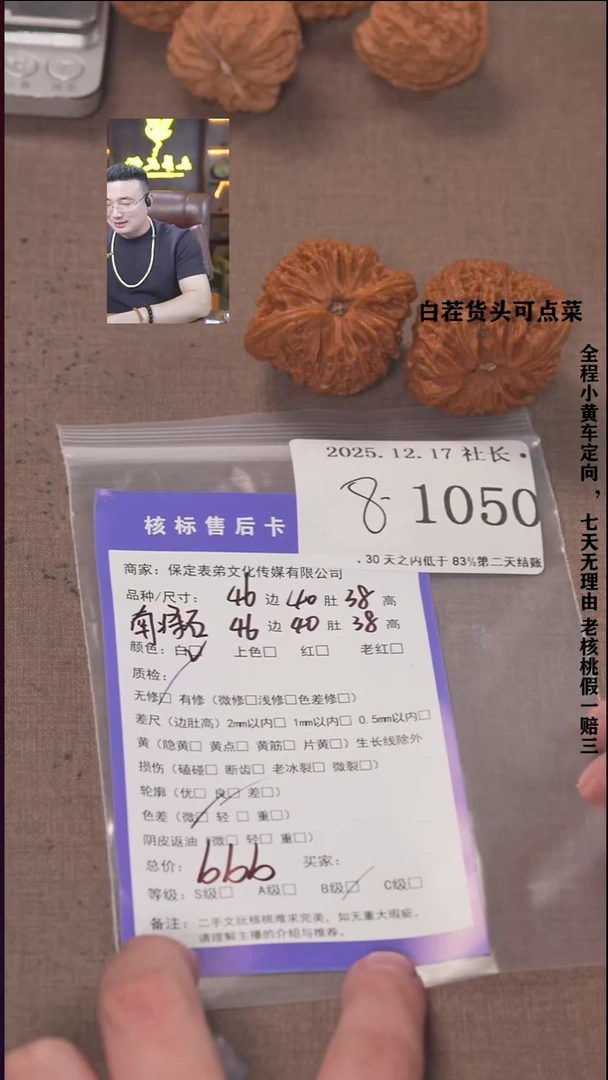 白茬货头可点菜
全程小黄车定向，七天无理由 老核桃假一赔三
2025.12.17 社长·
8- 1050
.30 天之内低于 83%第二天结账
核标售后卡
商家：保定表弟文化传媒有限公司
品种/尺寸： 46 边 40 肚 38 高
南将石 46 边 40 肚 38 高
颜色：白☑ 上色□ 红□ 老红□
质检：
无修☑ 有修（微修□浅修□色差修□）
差尺（边肚高）2mm以内□ 1mm以内□ 0.5mm以内□
黄（隐黄□ 黄点□ 黄筋□ 片黄□）生长线除外
损伤（磕碰□ 断齿□ 老冰裂□ 微裂□）
轮廓（优□ 良☑ 差□）
色差（微☑ 轻□ 重□）
阴皮返油（微□ 轻□ 重□）
总价： 666 买家：
等级：S级□ A级□ B级☑ C级□
备注：二手文玩核桃难求完美，如无重大瑕疵，
请理解主播的介绍与推荐。